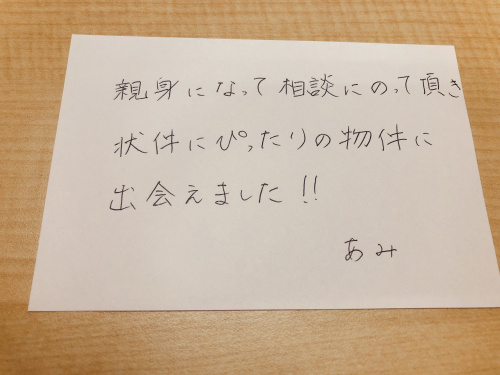 親身になって相談にのって頂き
状件にぴったりの物件に
出会えました!!
あみ